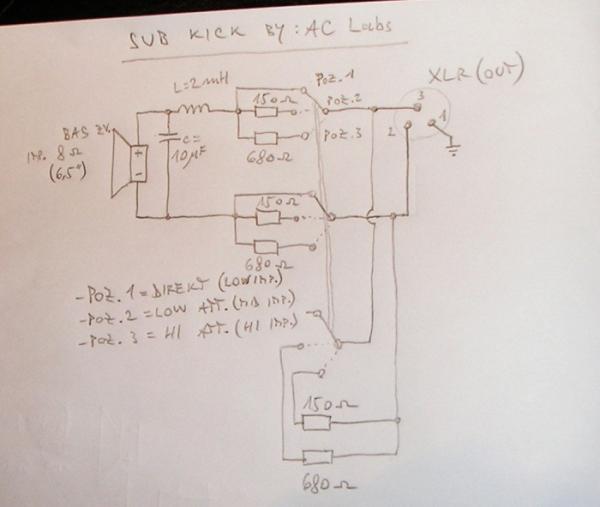 SUB KICK BY: AC Labs
L=2mH
POZ.1
XLR (OUT)
150Ω
POZ.2
3
1
BAS ZV.
C=
10µF
+
POZ.3
2
IMP. 8Ω
(6,5")
-
680Ω
150Ω
680Ω
-POZ.1 = DIREKT (LOW IMP.)
-POZ.2 = LOW ATT. (MID IMP.)
-POZ.3 = HI ATT. (HI IMP.)
150Ω
680Ω